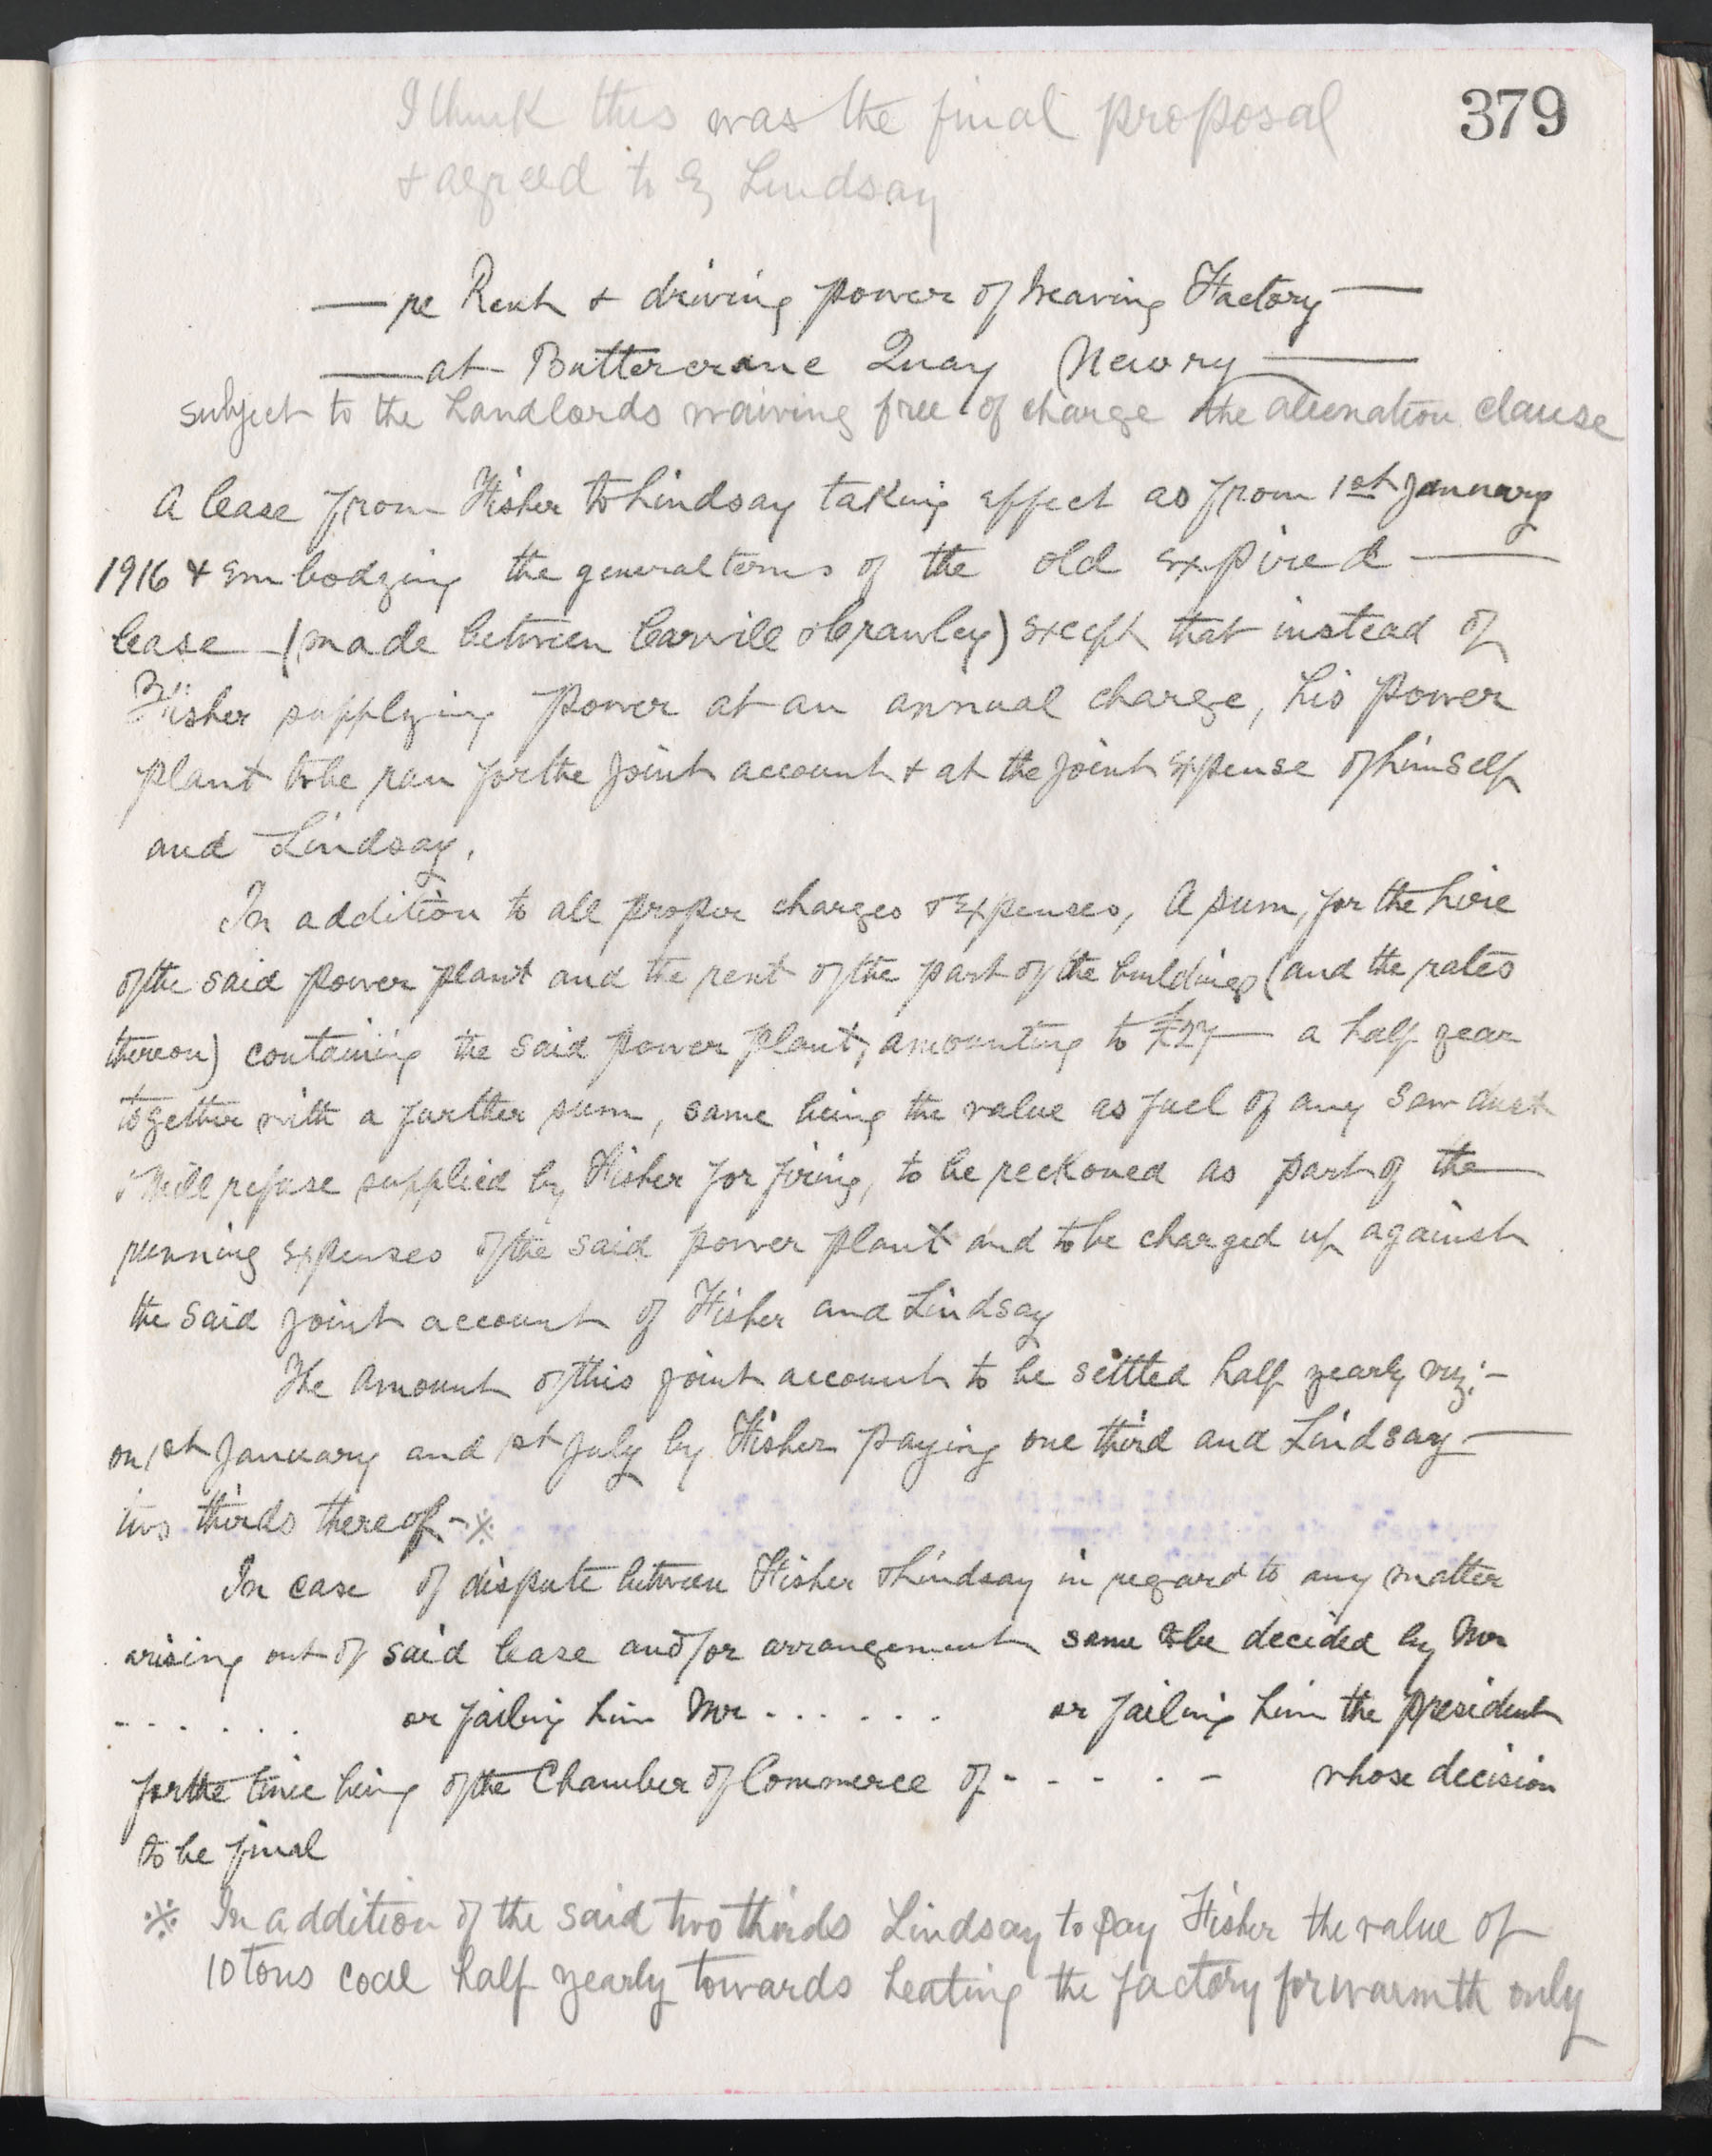 379
I think this was the final proposal
& agreed to by Lindsay
— re Rent & driving power of Weaving Factory —
— at Buttercrane Quay Newry —
subject to the Landlords waiving free of charge the alienation clause
A lease from Fisher to Lindsay taking effect as from 1st January
1916 & embodying the general terms of the old expired —
lease (made between Carvill & Crawley) except that instead of
Fisher supplying power at an annual charge, his power
plant to be run for the joint account & at the joint expense of himself
and Lindsay.
In addition to all proper charges & expenses, A sum, for the hire
of the said power plant and the rent of the part of the buildings (and the rates
thereon) containing the said power plant, amounting to £27 — a half year
together with a further sum, same being the value as fuel of any Saw dust
& Mill refuse supplied by Fisher for firing, to be reckoned as part of the —
running expenses of the said power plant and to be charged up against
the said joint account of Fisher and Lindsay
The amount of this joint account to be settled half yearly viz:-
on 1st January and 1st July by Fisher paying one third and Lindsay —
two thirds thereof - ※
In case of dispute between Fisher & Lindsay in regard to any matter
arising out of said lease and/or arrangement same to be decided by Mr
. . . . . . or failing him Mr . . . . . . or failing him the president
for the time being of the Chamber of Commerce of - - - - - whose decision
to be final
※ In addition of the said two thirds Lindsay to pay Fisher the value of
10 tons coal half yearly towards heating the factory for warmth only